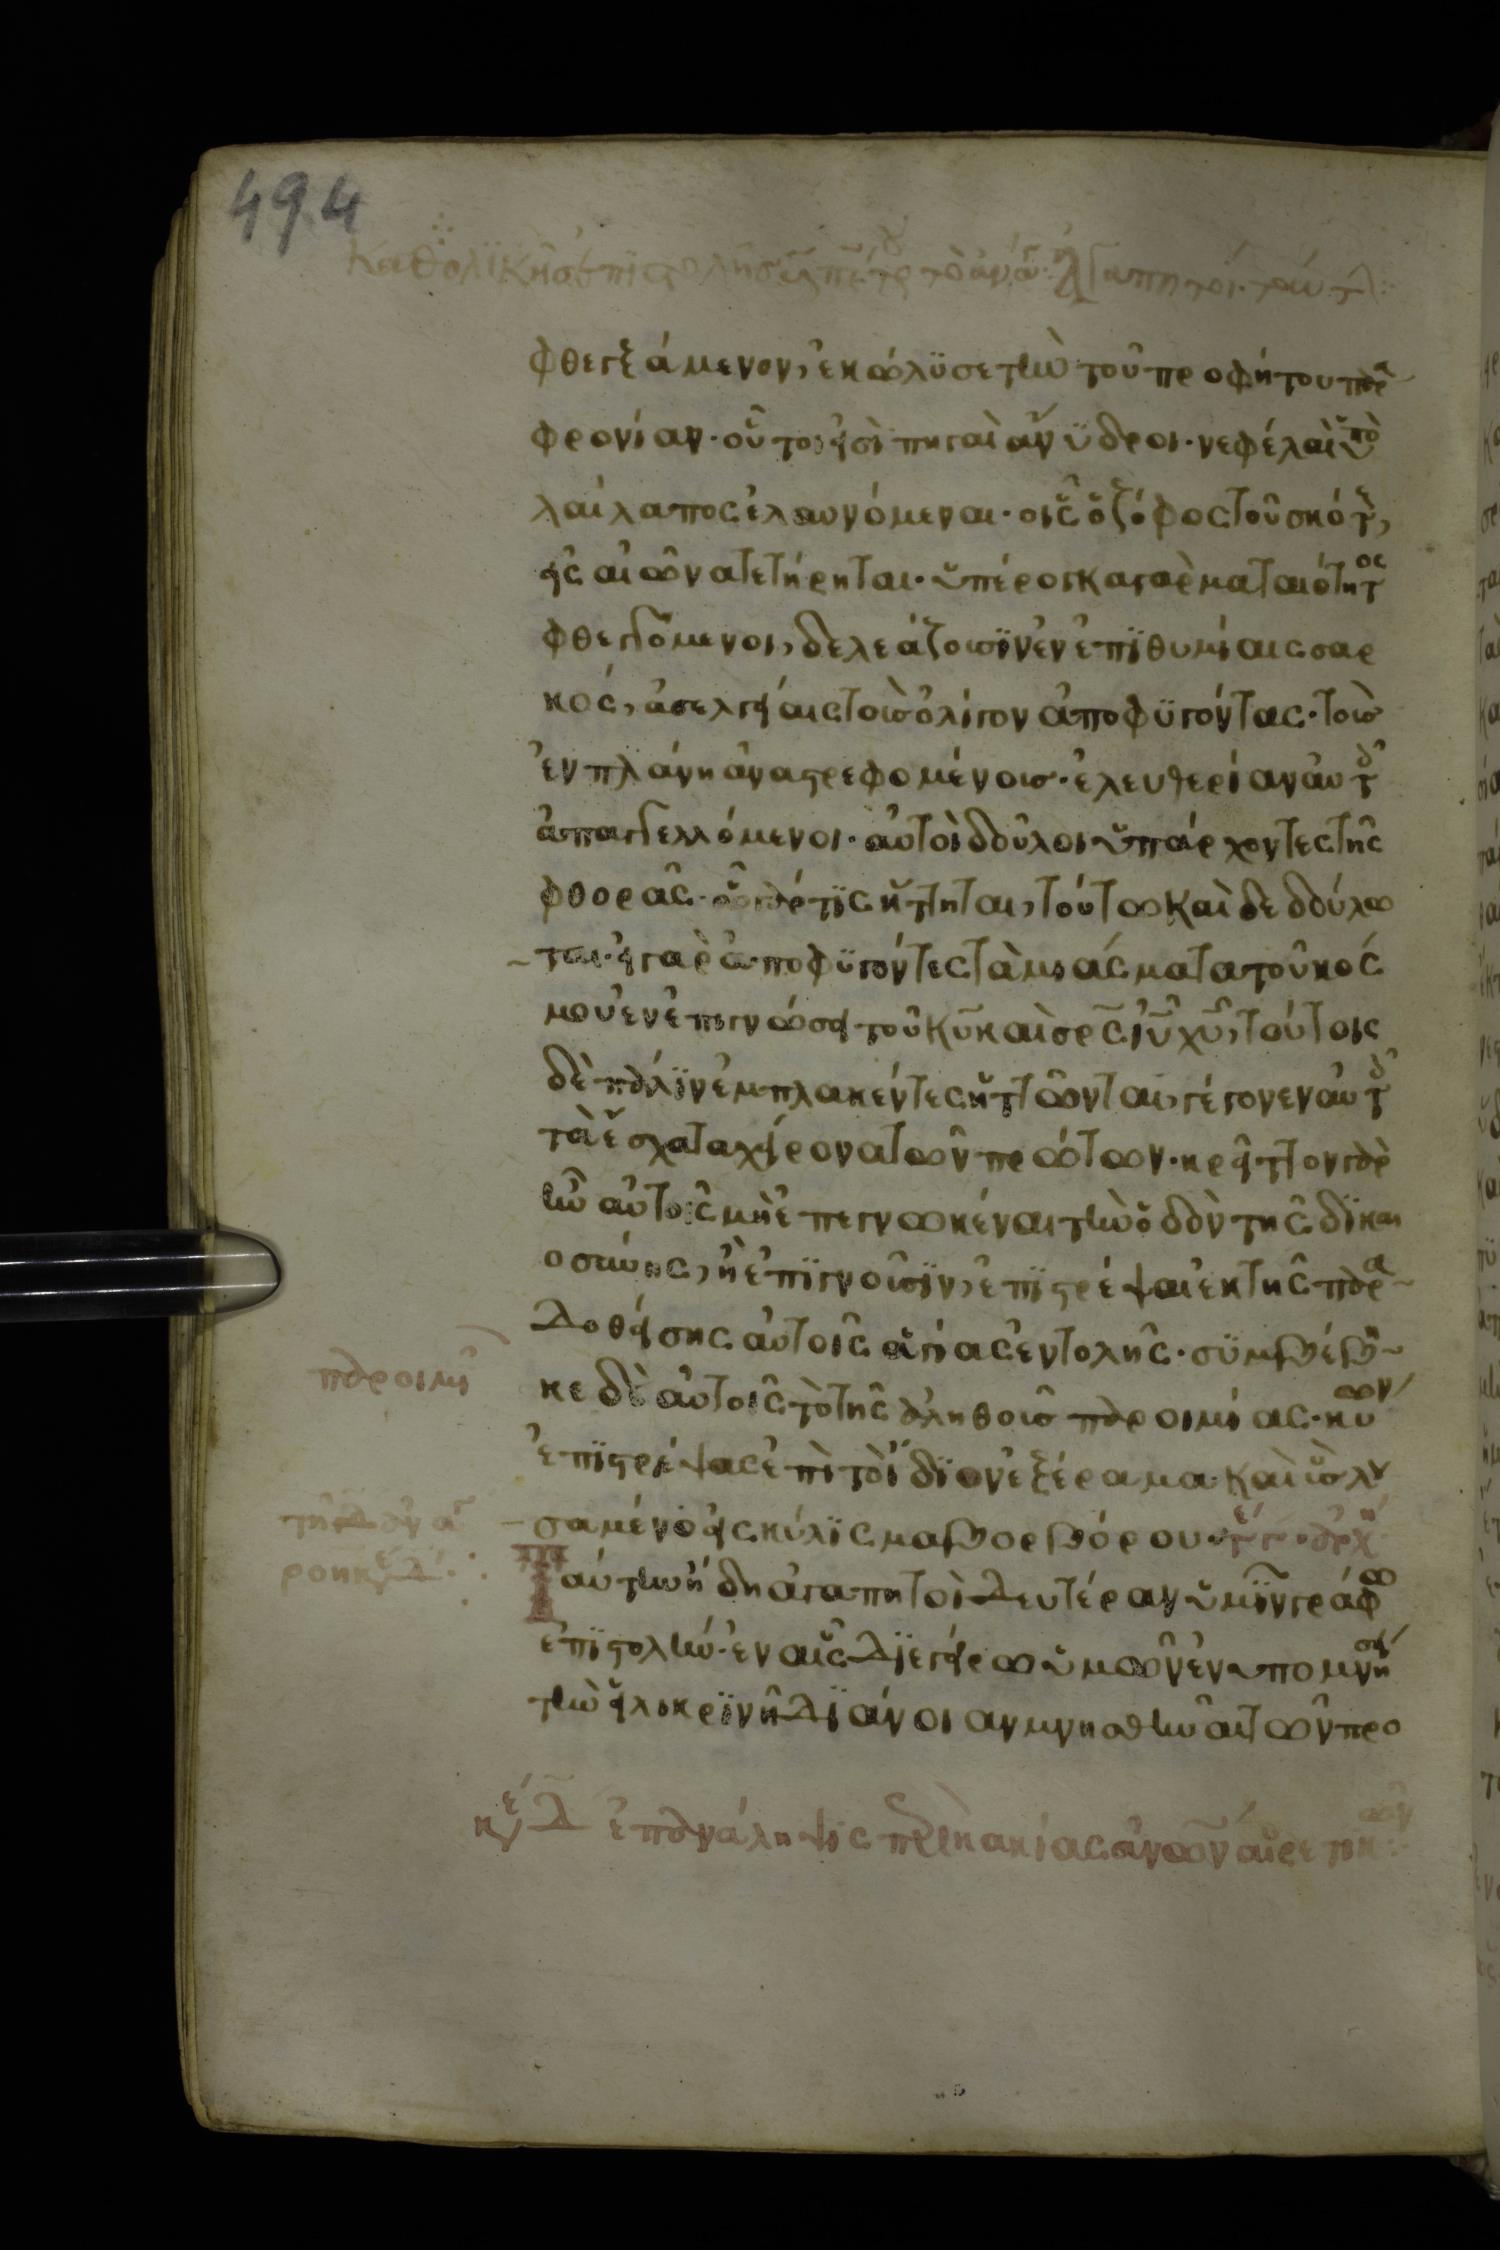 494
καθολικῆς ἐπιστολῆς
φθεγξάμενον, ἐκώλϋσε τὴν τοῦ προφήτου παρα
φρονίαν· οὗτοι εἰσὶ πηγαὶ ἄνϋδροι· νεφέλαι ὑπὸ
λαίλαπος ἐλαυνόμεναι· οἷς ὁ ζόφος τοῦ σκότους,
εἰς αἰῶνα τετήρηται· ὑπέρογκα γὰρ ματαιότητος
φθεγγόμενοι, δελεάζουσϊν ἐν ἐπϊθυμίαις σαρ
κός, ἀσελγείαις τοὺς ὀλίγον ἀποφϋγόντας· τοὺς
ἐν πλάνη ἀναστρεφομένους· ἐλευθερίαν αὐτοῖς
ἀπαγγελλόμενοι· αὐτοὶ δοῦλοι ὑπάρχοντες τῆς
φθορᾶς· ὧ γάρ τϊς ἥττηται, τούτω καὶ δεδούλω
ται· εἰ γὰρ ἀποφϋγόντες τὰ μιάσματα τοῦ κόσ
μου ἐν ἐπιγνώσει τοῦ κυ καὶ σρς ιυ χυ, τούτοις
δὲ πάλϊν ἐμπλακέντες ἥττῶνται, γέγονεν αὐτοῖς
τὰ ἔσχατα χείρονα τῶν πρώτων· κρεῖττον γὰρ
ἦν αὐτοῖς μὴ ἐπεγνωκέναι τὴν ὁδὸν τῆς δϊκαι
οσύνης, ἢ ἐπϊγνοῦσϊν, ἐπϊστρέψαι ἐκ τῆς παρα
δοθείσης αὐτοῖς ἁγίας ἐντολῆς· σϋμβέβη
κε δὲ αὐτοῖς τὸ τῆς ἀληθοῦς παροιμίας· κύων
ἐπϊστρέψας ἐπὶ τὸ ἴδϊον ἐξέραμα· καὶ ὗς λου
σαμένη εἰς κύλϊσμα βορβόρου· τέλος ἀρχὴ
Ταύτην ἤδη ἀγαπητοὶ δευτέραν ὑμῖν γράφω
ἐπϊστολήν· ἐν αἷς δϊεγείρω ὑμῶν ἐν ὑπομνήσει
τὴν εἰλικρϊνῆ δϊάνοιαν μνησθῆναι τῶν προ
παροιμι
κε δ ἐπανάληψϊς περὶ κακίας ἀνων αἱρετικῶν